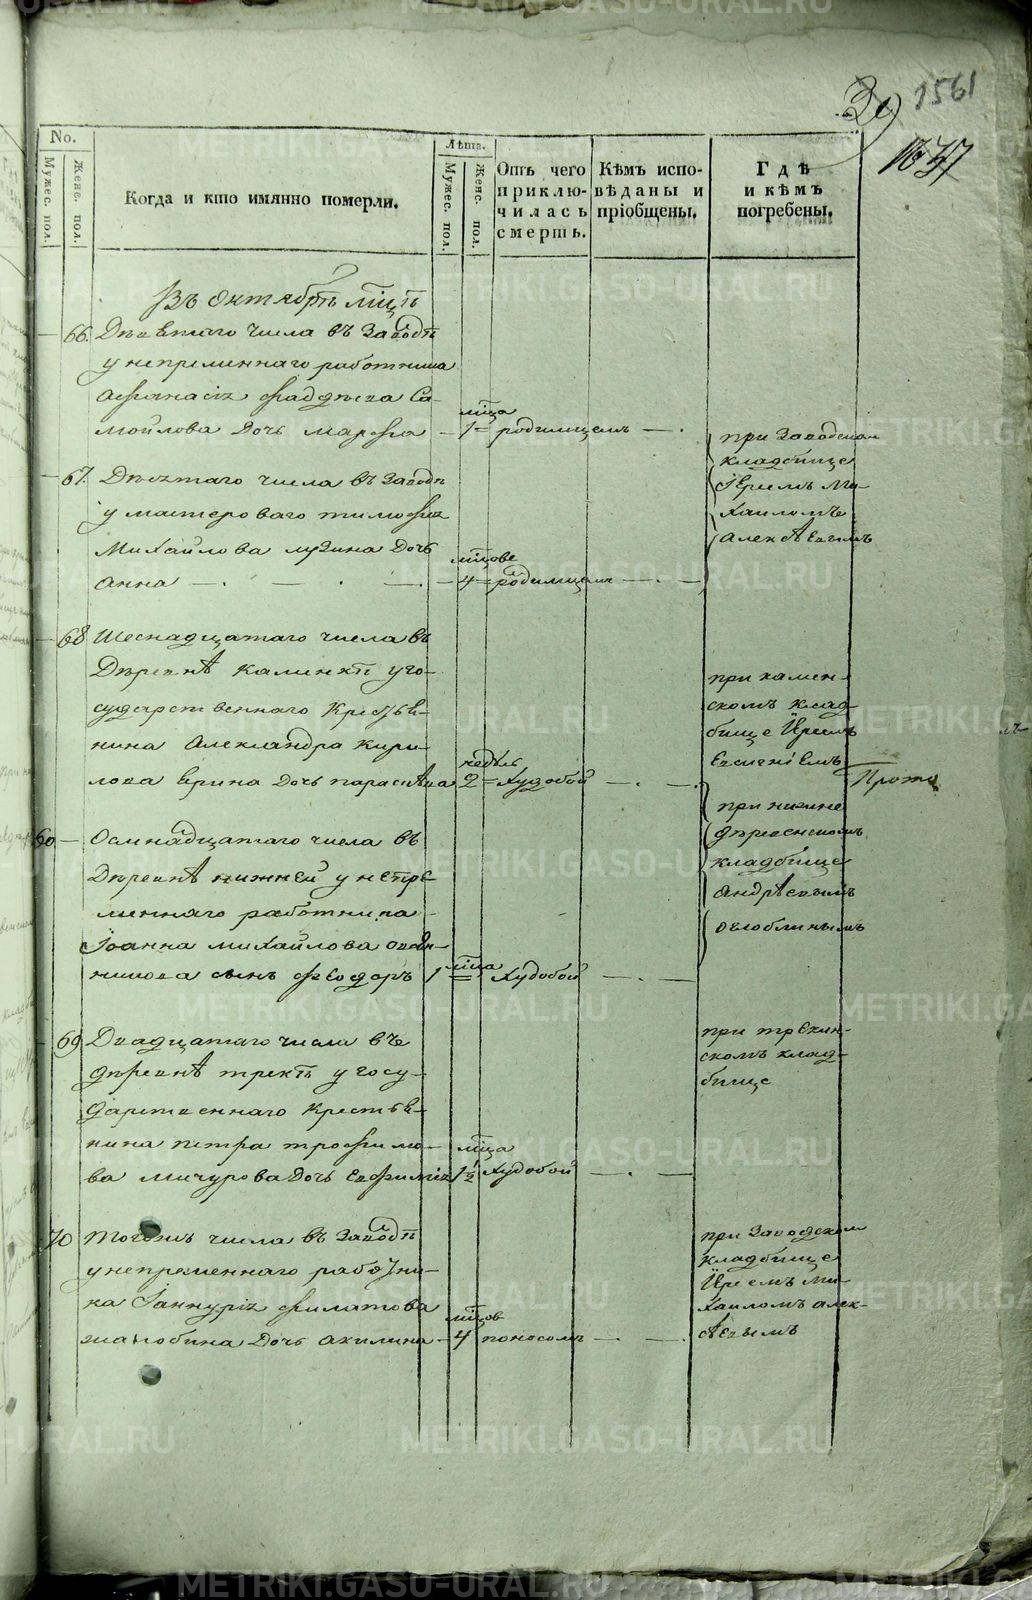 39 1561
1637
No.
Мужес. пол.
Женс. пол.
Когда и кто имянно померли.
Лѣта.
Мужес. пол.
Женс. пол.
Отъ чего приклю-чилась смерть.
Кѣмъ испо-вѣданы и пріобщены.
Гдѣ и кѣмъ погребены.
Въ октябрѣ мцѣ
66. Девятаго числа въ Заводѣ
у непременнаго работника
Афанасія Фадѣева Са-
мойлова дочь Марфа — мца 1 = родимцемъ —
при Заводскомъ
кладбище
Іереемъ Ми-
хаиломъ
Алексѣевымъ
67. числа въ Заводѣ
у мастероваго Тимофея
Михайлова дочь
Анна — мцове 4 = родимцемъ —
68 Шеснадцатаго числа въ
Деревнѣ Калинкѣ у го-
сударственнаго Крестья-
нина Александра Кири-
лова дочь Параскѣва недѣль 2 = Худобой —
при камен-
скомъ клад-
бище Іереемъ
60 — Осмнадцатаго числа въ
Деревнѣ нижней у непре-
меннаго работника
Іоанна Михайлова
сынъ Феодоръ 1 мца = Худобой —
при нижне
деревенскомъ
кладбище
Андрѣевымъ
Оглоблинымъ
69 Двадцатаго числа въ
деревнѣ трекѣ у госу-
дарственнаго крестья-
нина Петра Трофимо-
ва Мичурова дочь Евфимія мца 1 1/2 Худобой —
при трекин-
скомъ клад-
бище
70 Тогожъ числа въ Заводѣ
у непременнаго работни-
ка Іаннурія Филатова
дочь Акилина — мцов 4 поносомъ —
при Заводскомъ
кладбище
Іереемъ Ми-
хаиломъ Алек-
сѣевымъ
METRIKI.GASO-URAL.RU